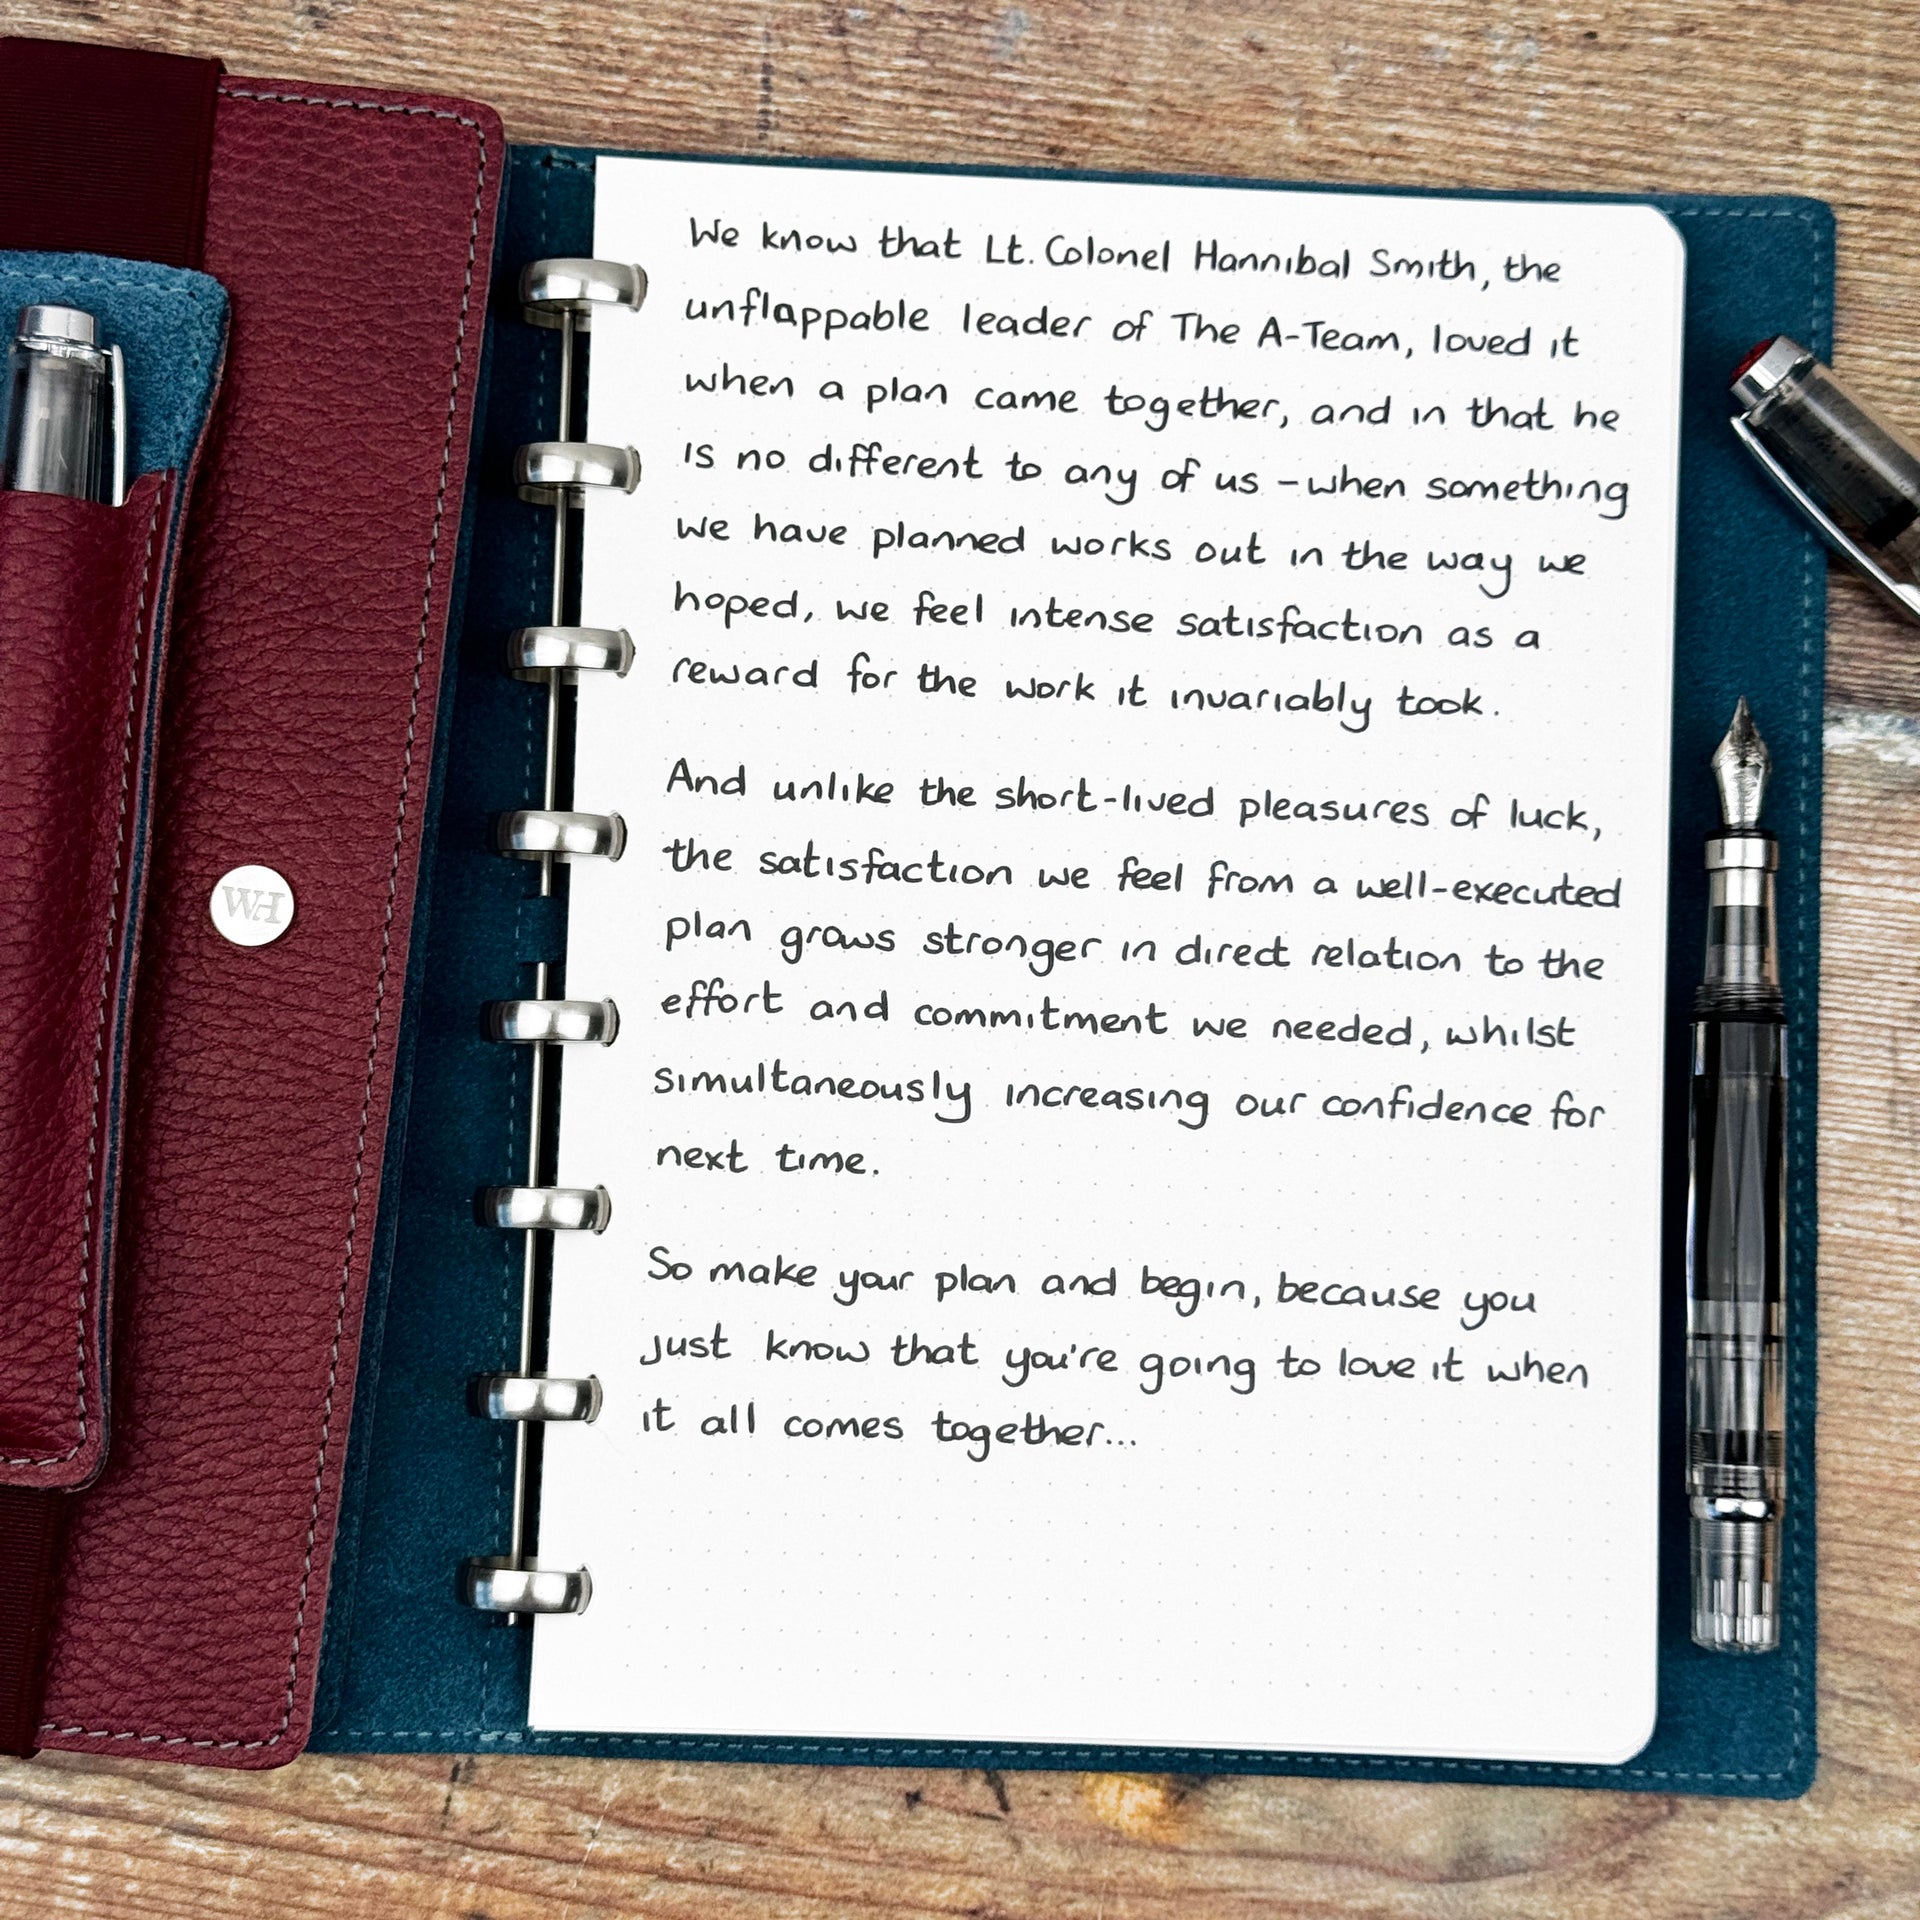 We know that Lt. Colonel Hannibal Smith, the
unflappable leader of The A-Team, loved it
when a plan came together, and in that he
is no different to any of us - when something
we have planned works out in the way we
hoped, we feel intense satisfaction as a
reward for the work it invariably took.
And unlike the short-lived pleasures of luck,
the satisfaction we feel from a well-executed
plan grows stronger in direct relation to the
effort and commitment we needed, whilst
simultaneously increasing our confidence for
next time.
So make your plan and begin, because you
just know that you're going to love it when
it all comes together...
WH